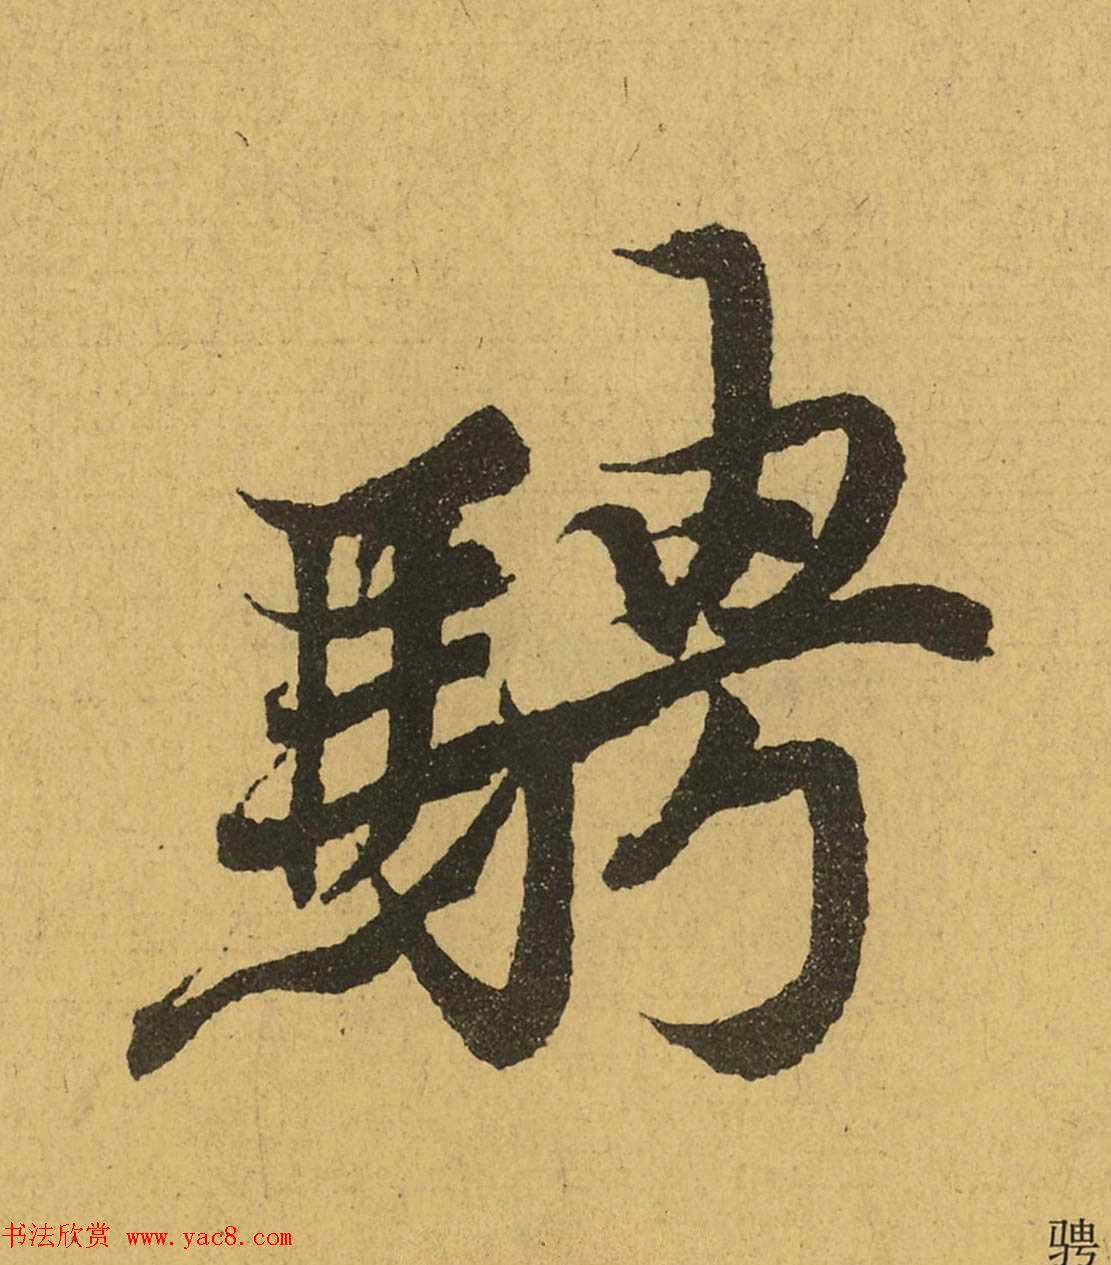 騁
骋
书法欣赏 www.yac8.com